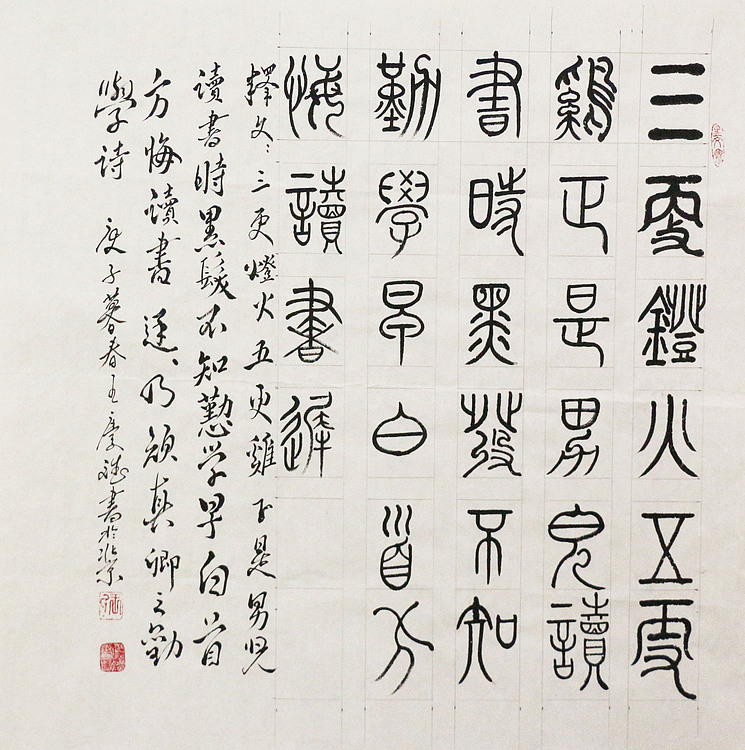 三更鐙火五更
鷄正是男兒讀
書時黑發不知
勤學早白首方
悔讀書遲
釋文：三更燈火五更雞正是男兒
讀書時黑髮不知懃學早白首
方悔讀書遲、乃顔真卿之勸
學詩 庚子暮春王慶書於北京